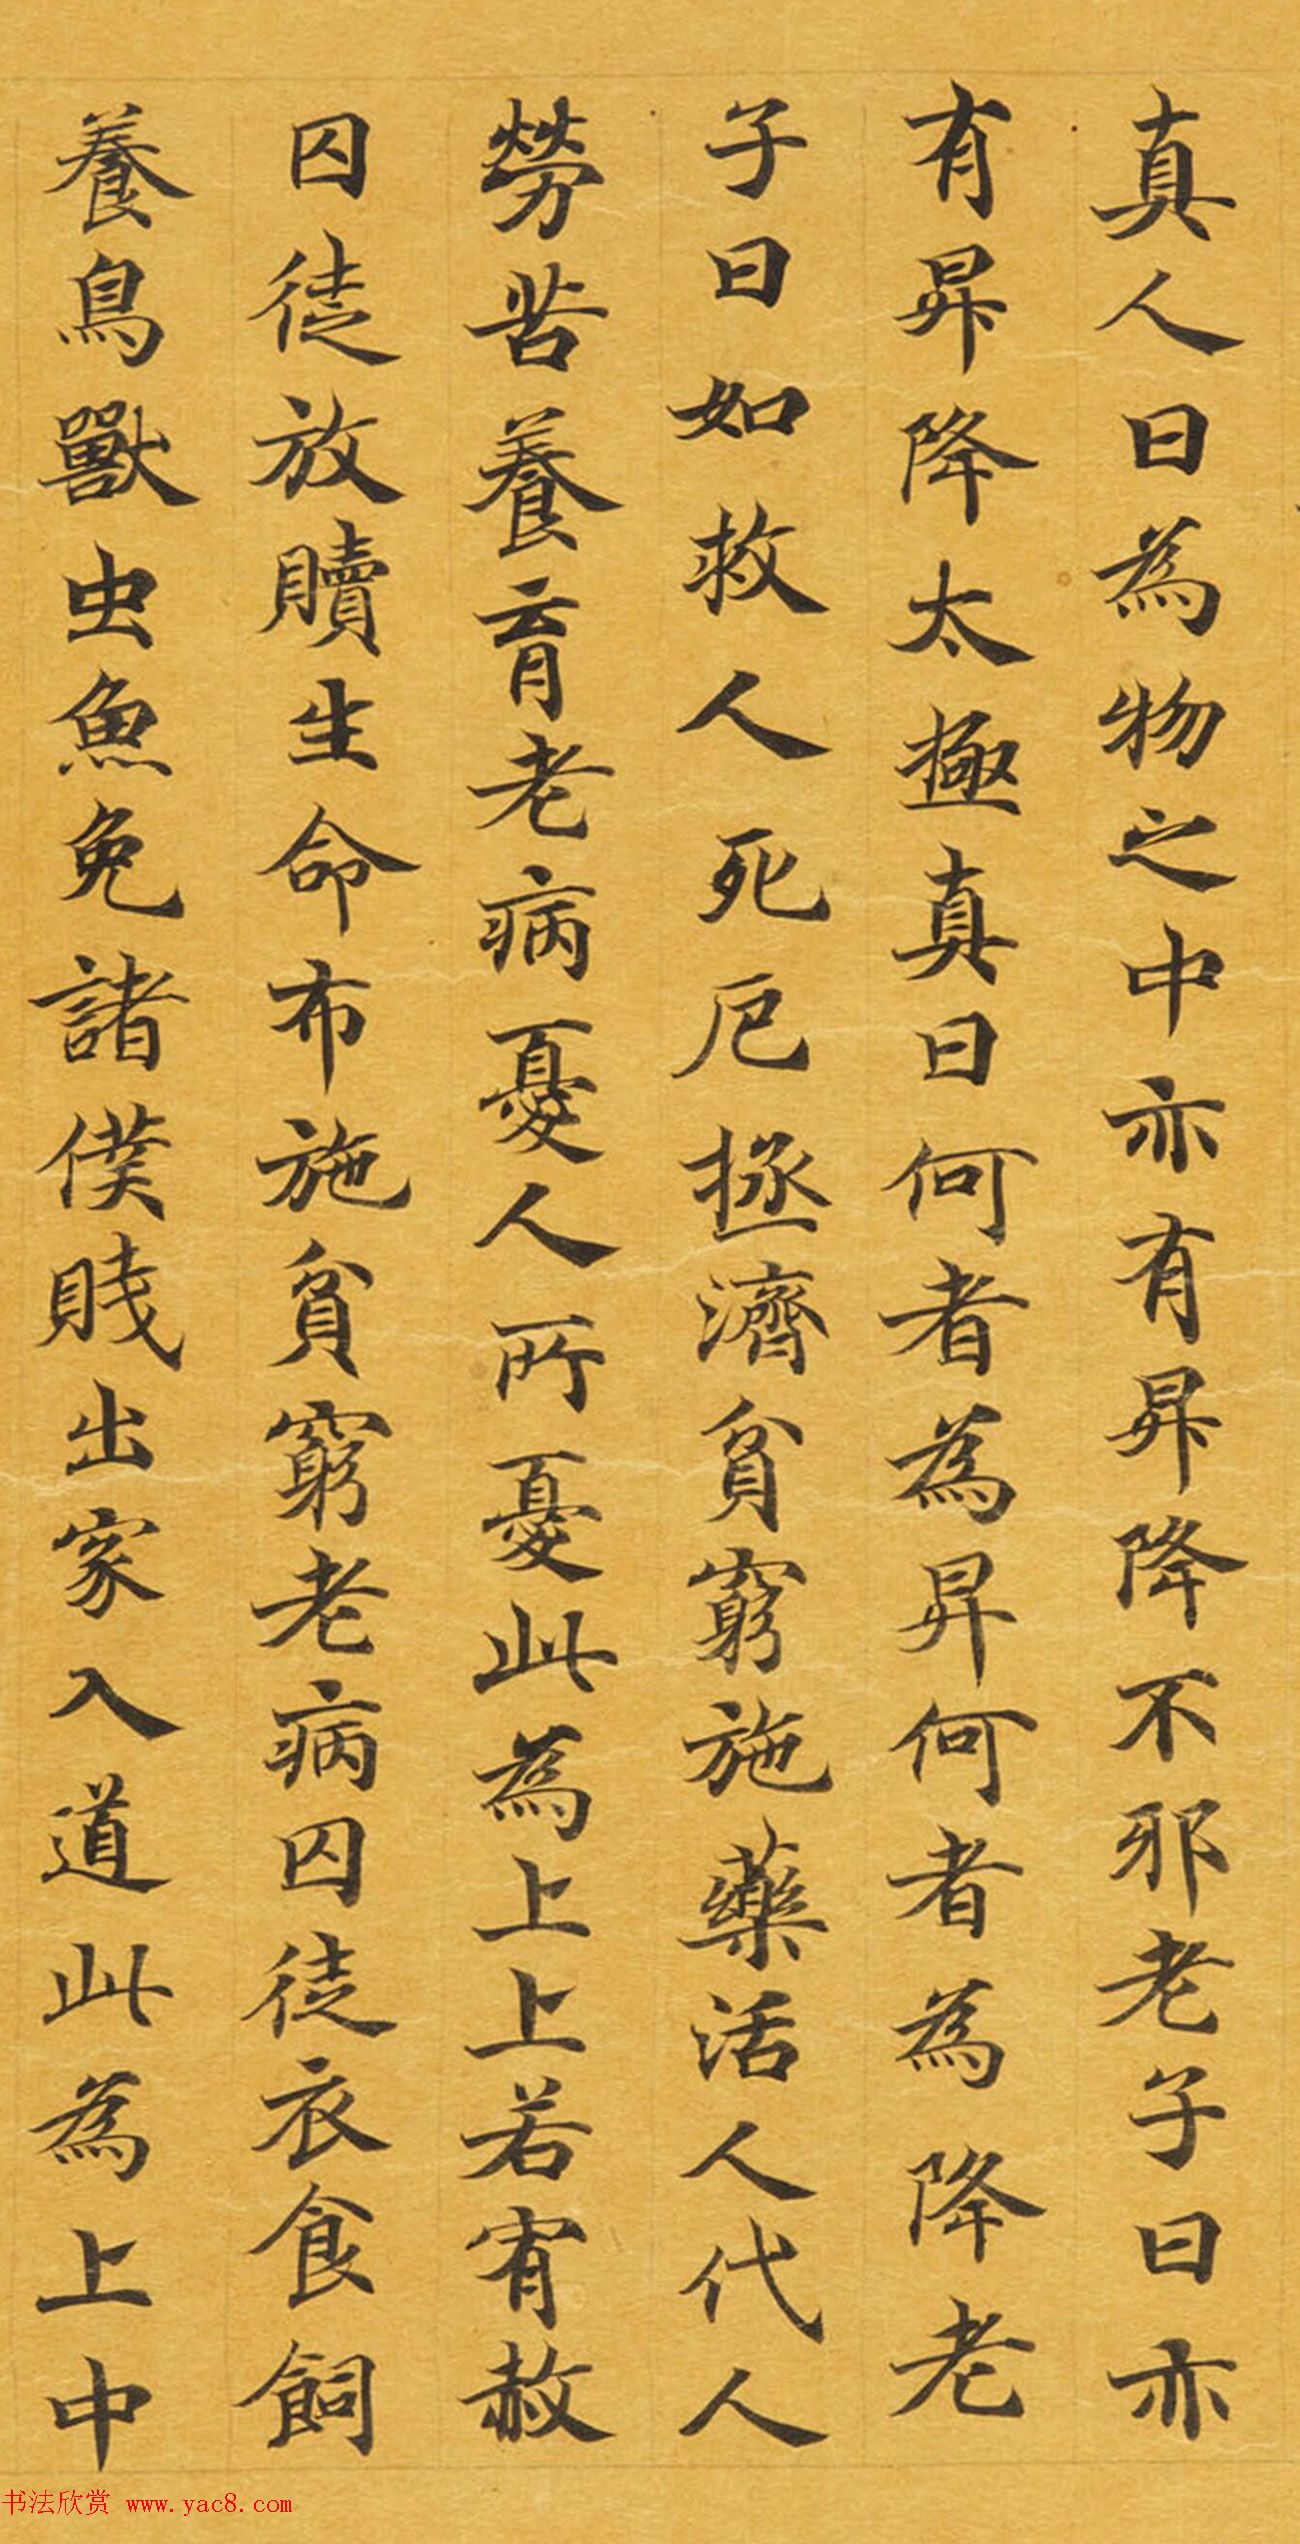 真人曰為物之中亦有昇降不邪老子曰亦
有昇降太極真曰何者為昇何者為降老
子曰如救人死厄拯濟貧窮施藥活人代人
勞苦養育老病憂人所憂此為上上若宥赦
囚徒放贖生命布施貧窮老病囚徒衣食飼
養鳥獸虫魚免諸僕賤出家入道此為上中
书法欣赏 www.yac8.com